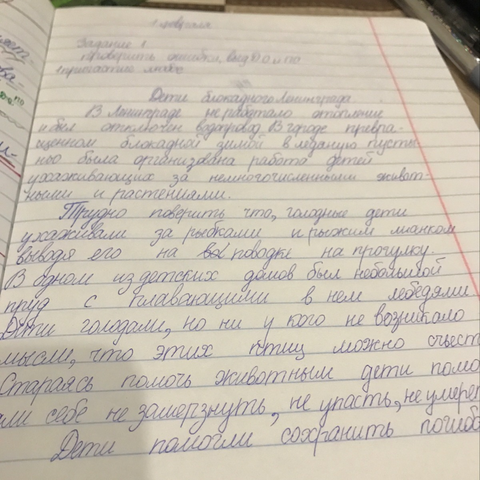 1 февраля
Задание 1
Проверить ошибки,
Дети блокадного Ленинграда.
В Ленинграде не работало отопление
и был отключен водопровод. В городе превра-
щенном блокадной зимой в ледяную пусты-
ню была организована работа детей
ухаживающих за немногочисленными живот-
ными и растениями.
Трудно поверить что, голодные дети
ухаживали за рыбками и рыжим
выводя его на поводке на прогулку.
В одном из детских домов был небольшой
пруд с плавающими в нем лебедями
Дети голодали, но ни у кого не возникало
мысли, что этих птиц можно съесть
Стараясь помочь животным дети помо
ли себе не замерзнуть, не упасть, не умереть
Дети помогли сохранить погиб